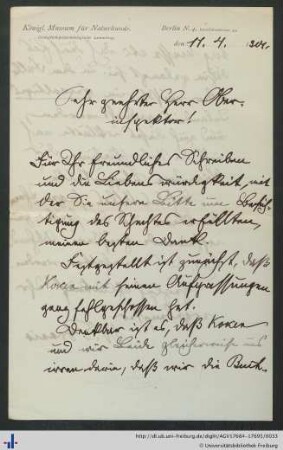 Königl. Museum für Naturkunde.
Berlin N. 4,
den 11. 4. 1904.
Sehr geehrter Herr Ober-
inspektor!
Für Ihr freundliches Schreiben
und die Liebenswürdigkeit, mit
der Sie unsere Bitte um Besich-
tigung des Schachtes erfüllten,
meinen besten Dank.
Festgestellt ist zunächst, daß
mit seinen Auffassungen
ganz fehlgeschossen hat.
Denkbar ist es, daß
und wir beide gleicherweise uns
irren darin, daß wir die
http://dl.ub.uni-freiburg.de/diglit/AGV17684-17695/0033
© Universitätsbibliothek Freiburg